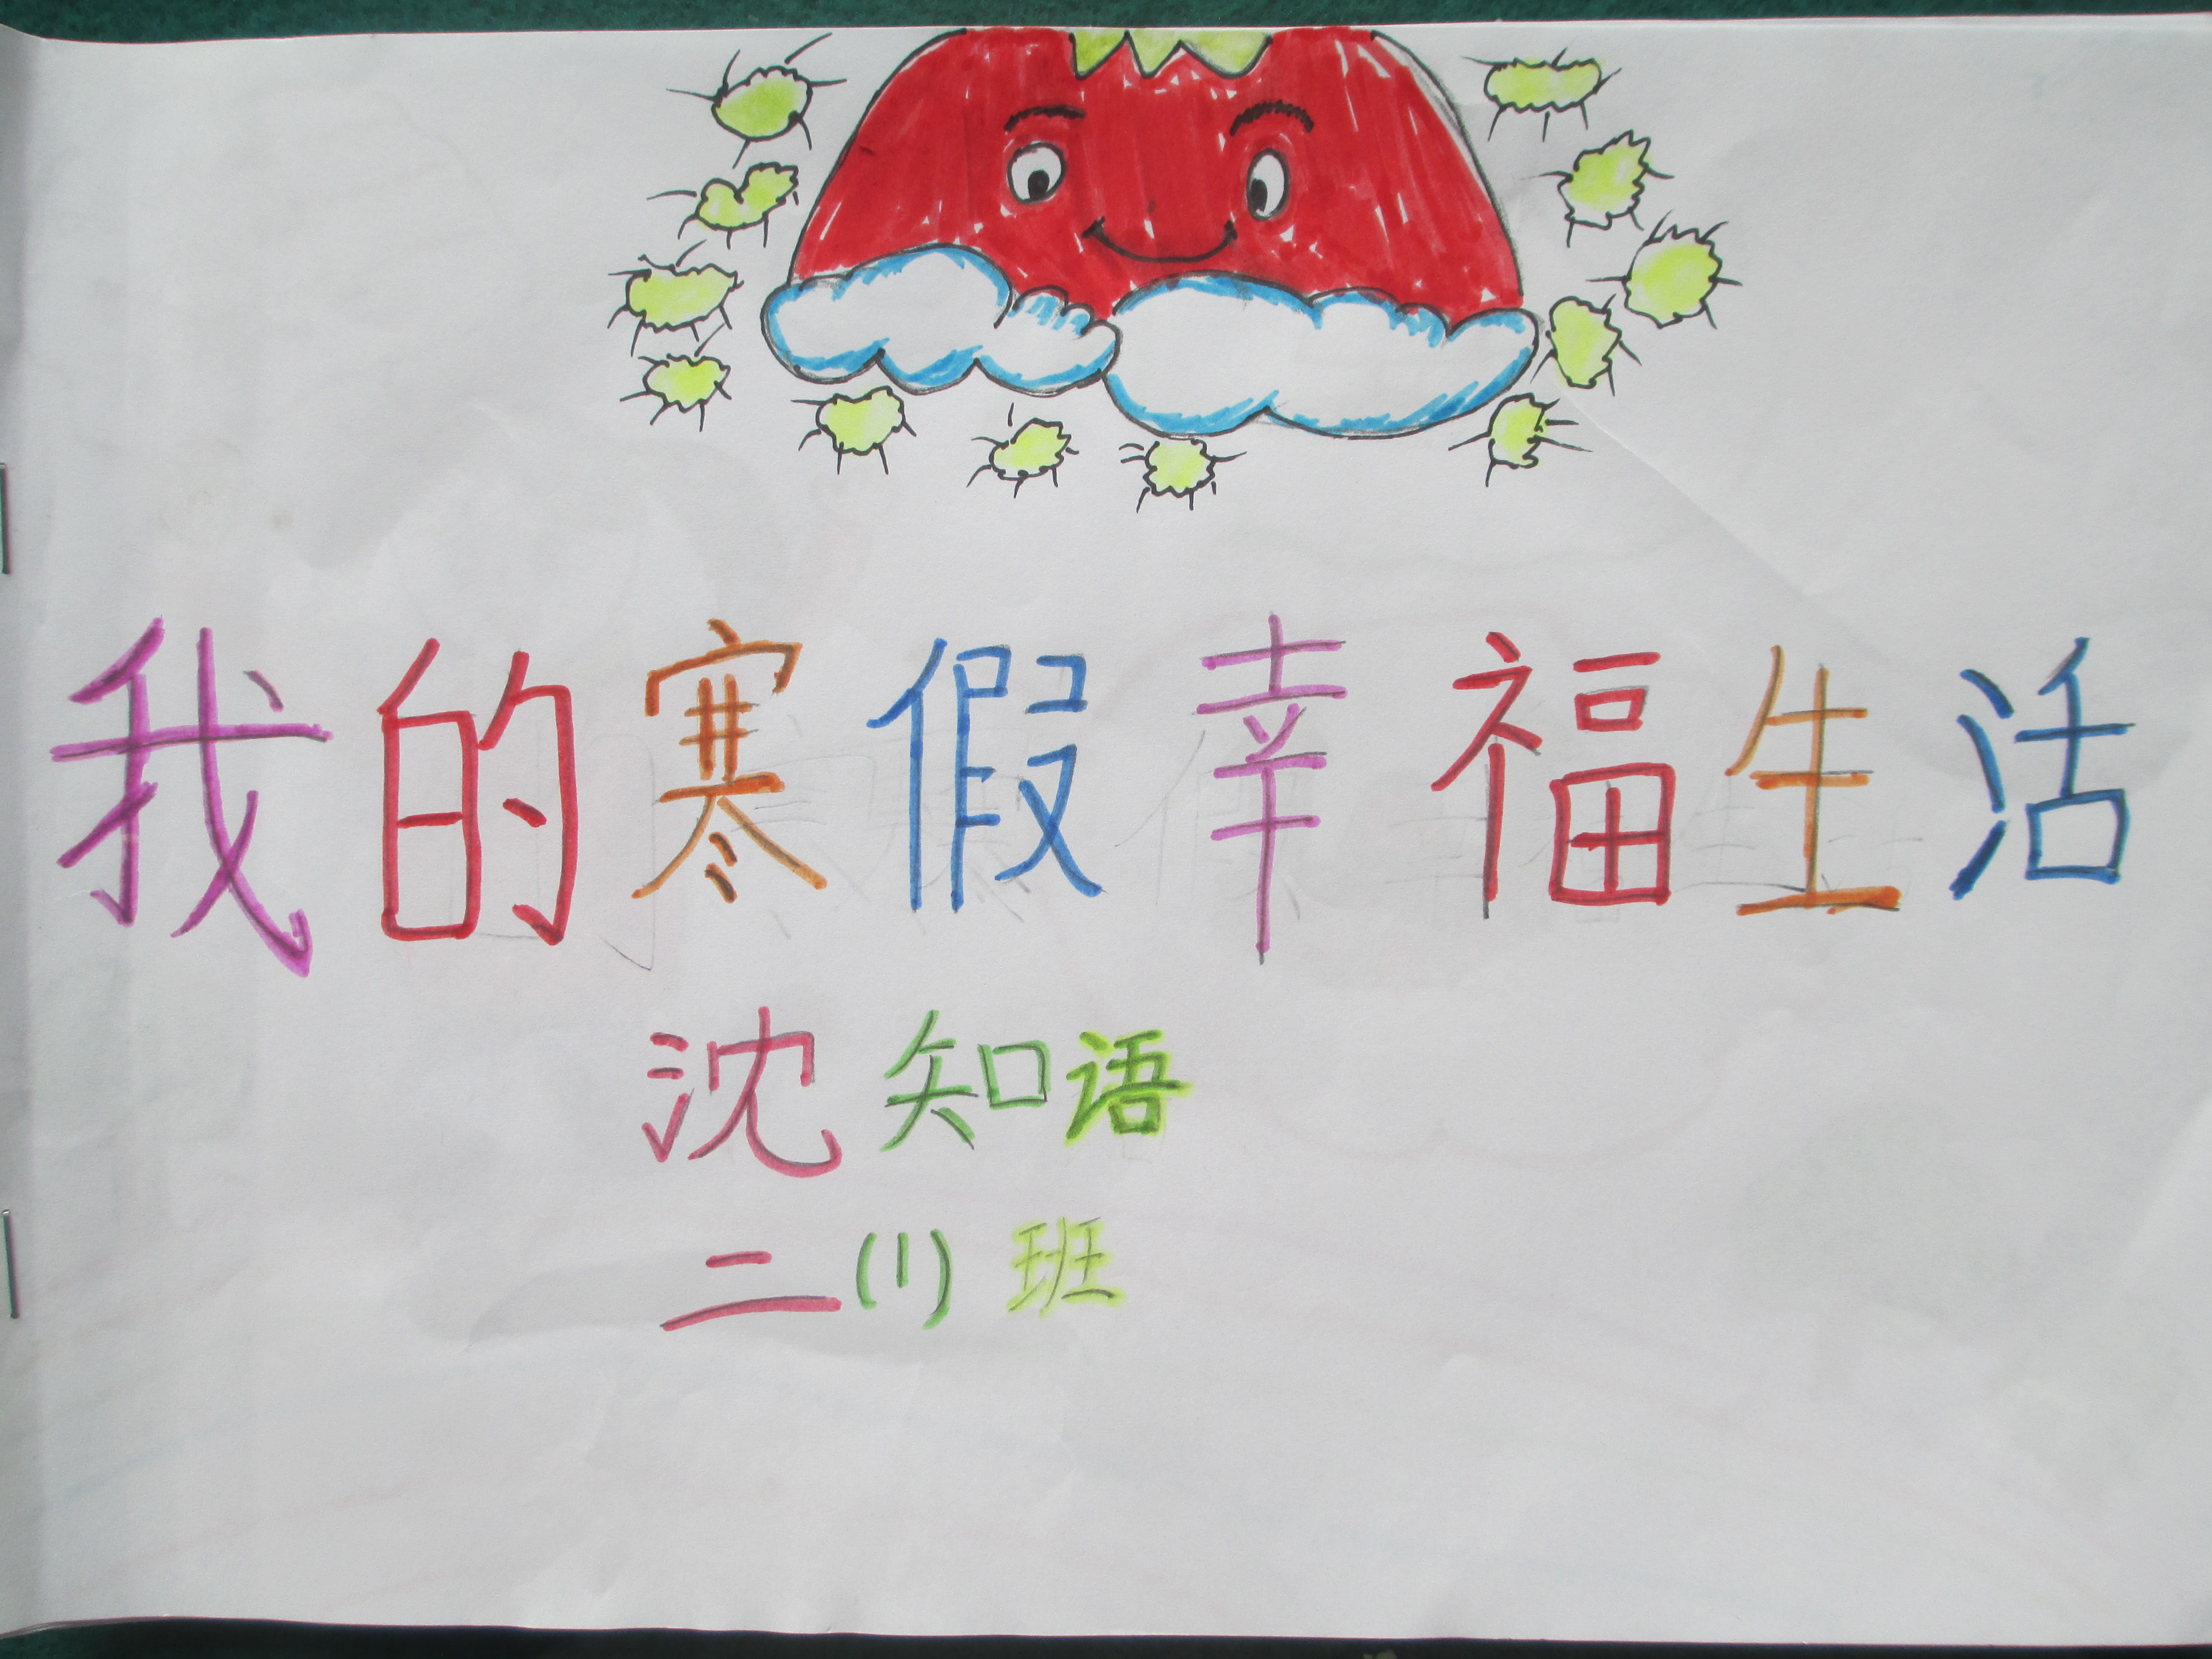 我的寒假幸福生活
沈知语
二(1)班